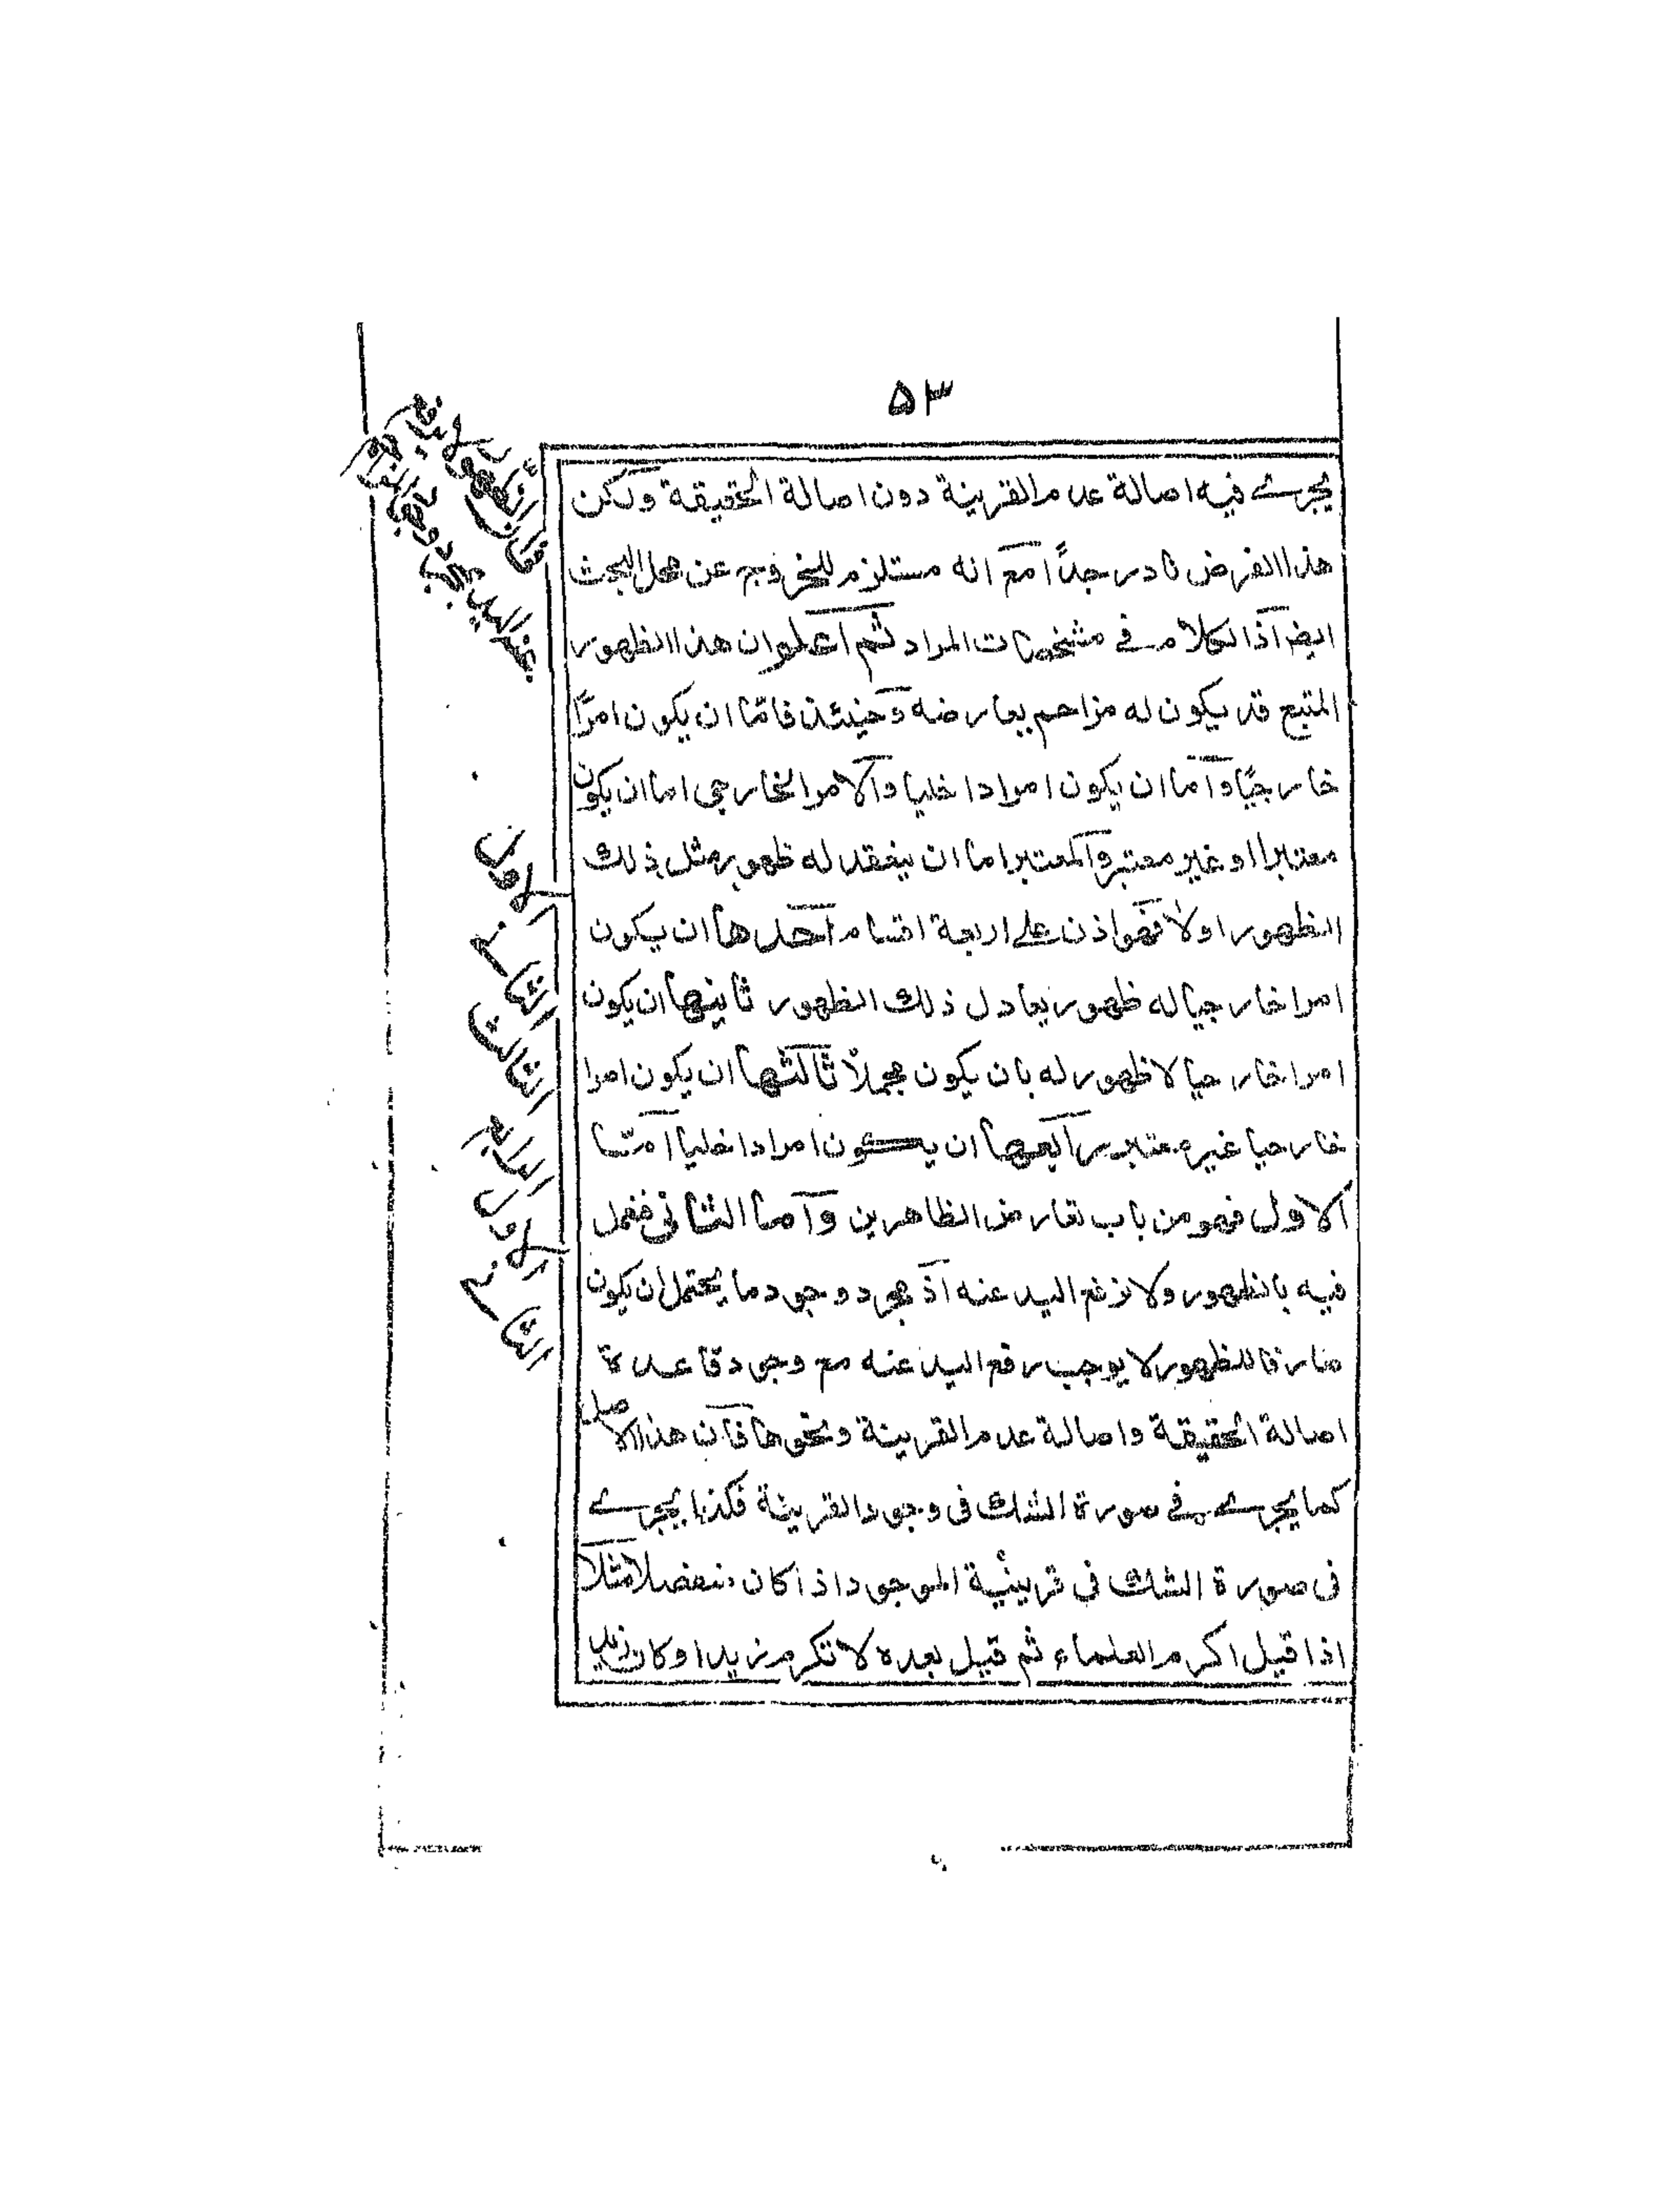 ۵۳
يجرے فيه اصالة عدم القرينة دون اصالة الحقيقة ولكن
هذا الفرض نادر جدًّا مع انه مستلزم للخروج عن محل البحث
ايضا اذ الكلام فے مشخصات المراد ثم اعلموا ن هذا الظهور
المتبع قد يكون له مزاحم يعارضه وحينئذ فامّا ان يكون امرًا
خارجيًّا وامّا ان يكون امرا داخليا والامر الخارجى اما ان يكون
معتبرا او غير معتبر والمعتبر اما ان ينعقد له ظهور مثل ذلك
الظهور اولا فهو اذن علے اربعة اقسام احدها ان يكون
امرا خارجيا له ظهور يعادل ذلك الظهور ثانيها ان يكون
امرا خارجيا لا ظهور له بان يكون مجملاً ثالثها ان يكون امرا
خارجيا غير معتبر رابعها ان يكون امرا داخليا امّا
الاول فهو من باب تعارض الظاهرين واما الثانى فنعمل
فيه بالظهور ولا نرفع اليد عنه اذ مجرد وجود ما يحتمل ان يكون
صارفا للظهور لا يوجب رفع اليد عنه مع وجود قاعدة
اصالة الحقيقة واصالة عدم القرينة ونحوها فان هذا الاصل
كما يجرے فے صورة الشك فى وجود القرينة فكذا يجرے
فى صورة الشك فى قرينيّة الموجود اذا كان منفصلا مثلا
اذا قيل اكرم العلماء ثم قيل بعده لا تكرم زيدا وكان زيد
فان الظهور لا يرفع
عنه اليد بمجرد وجود
الاول
الثانى
الثالث
الرابع
الاول
الثانى